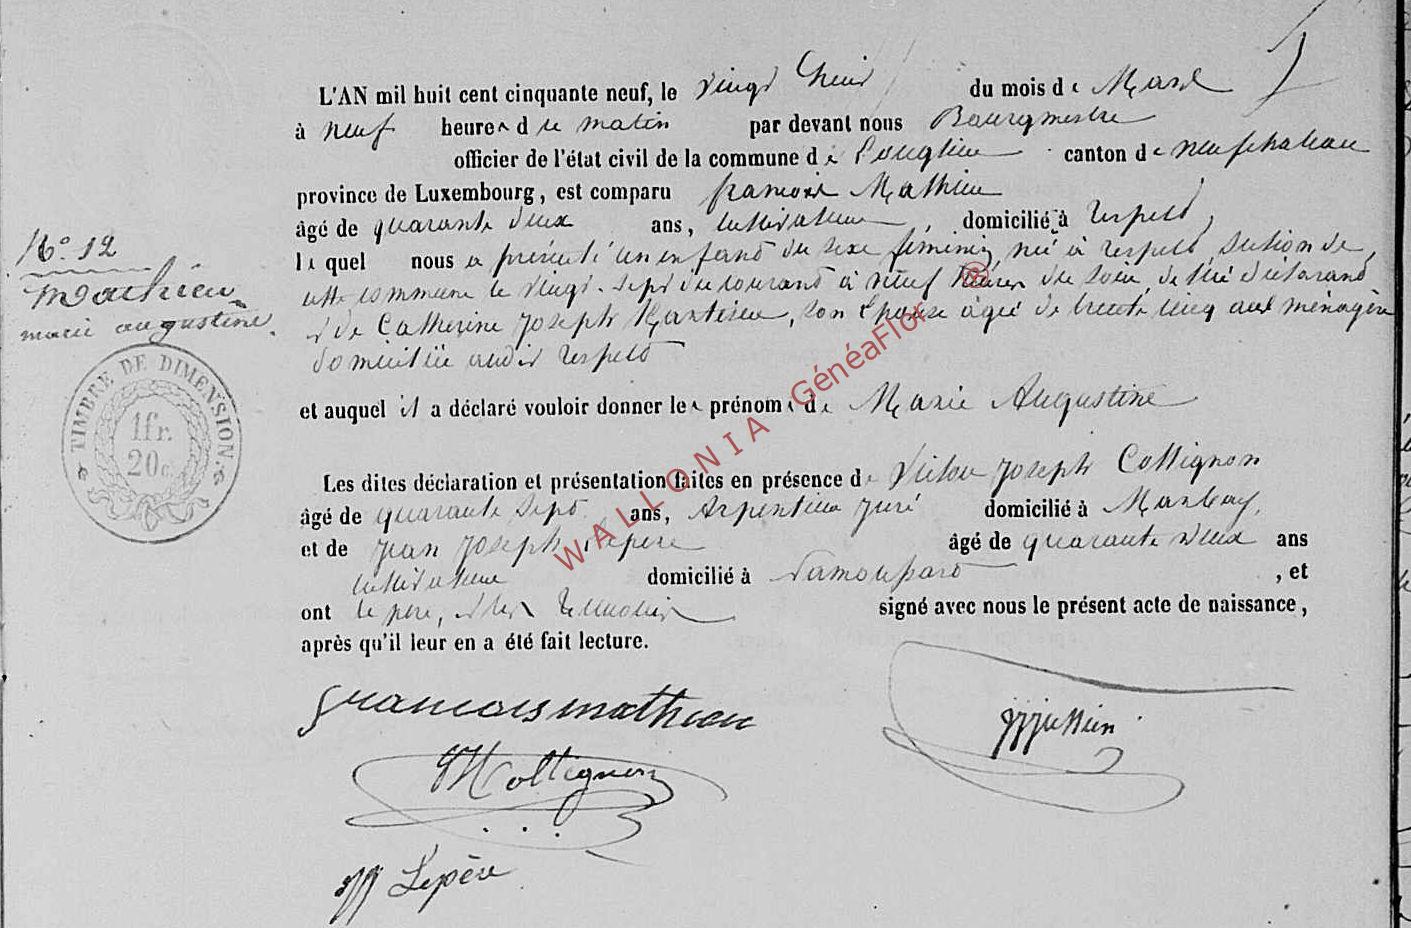 L'AN mil huit cent cinquante neuf, le vingt huit du mois de Mars
à neuf heures du matin par devant nous Bourgmestre
officier de l'état civil de la commune de Longlier canton de neufchateau
province de Luxembourg, est comparu françois Mathieu
âgé de quarante deux ans, cultivateur, domicilié à Respelt,
lequel nous a présenté un enfant du sexe féminin, né à respelt, section de
cette commune le vingt-sept du courant à neuf heures du soir, de lui déclarant
et de Catherine Joseph son épouse agée de trente cinq ans ménagère
domiciliée audit respelt
et auquel il a déclaré vouloir donner les prénoms de Marie Augustine
Les dites déclaration et présentation faites en présence de Joseph Collignon
âgé de quarante sept ans, Arpenteur juré domicilié à Manbay,
et de Jean Joseph Lepere âgé de quarante deux ans
cultivateur domicilié à Namoupart, et
ont le père, et les témoins signé avec nous le présent acte de naissance,
après qu'il leur en a été fait lecture.
N° 12
Mathieu
marie augustine.
TIMBRE DE DIMENSION
1fr.
20c.
WALLONIA GénéaFlor ®
francois mathieu
Collignon
Lepère